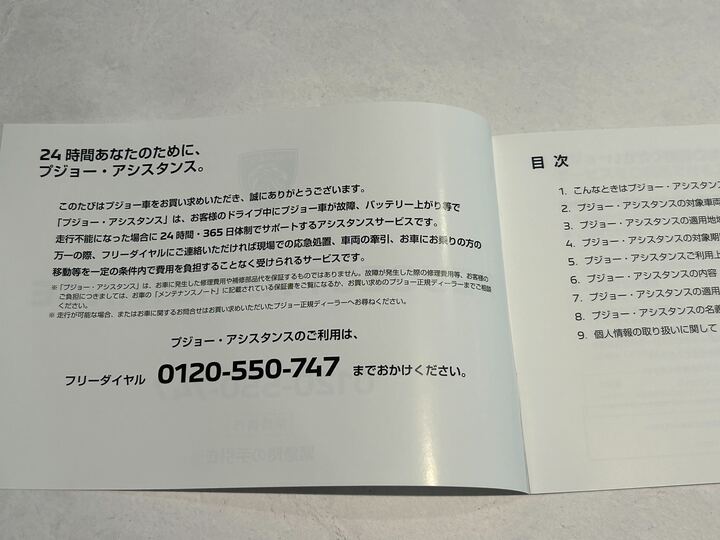 24 時間あなたのために、
プジョー・アシスタンス。
このたびはプジョー車をお買い求めいただき、誠にありがとうございます。
「プジョー・アシスタンス」は、お客様のドライブ中にプジョー車が故障、バッテリー上がり等で
走行不能になった場合に 24 時間・365 日体制でサポートするアシスタンスサービスです。
万一の際、フリーダイヤルにご連絡いただければ現場での応急処置、車両の牽引、お車にお乗りの方の
移動等を一定の条件内で費用を負担することなく受けられるサービスです。
※「プジョー・アシスタンス」は、お車に発生した修理費用や補修部品代を保証するものではありません。故障が発生した際の修理費用等、お客様の
ご負担につきましては、お車の「メンテナンスノート」に記載されている保証書をご覧になるか、お買い求めのプジョー正規ディーラーまでご相談
ください。
※ 走行が可能な場合、またはお車に関するお問合せはお買い求めいただいたプジョー正規ディーラーへお尋ねください。
プジョー・アシスタンスのご利用は、
フリーダイヤル 0120-550-747 までおかけください。
目 次
1. こんなときはプジョー・アシスタンス
2. プジョー・アシスタンスの対象車両
3. プジョー・アシスタンスの適用地域
4. プジョー・アシスタンスの対象期
5. プジョー・アシスタンスご利用上
6. プジョー・アシスタンスの内容
7. プジョー・アシスタンスの適用
8. プジョー・アシスタンスの名義
9. 個人情報の取り扱いに関して